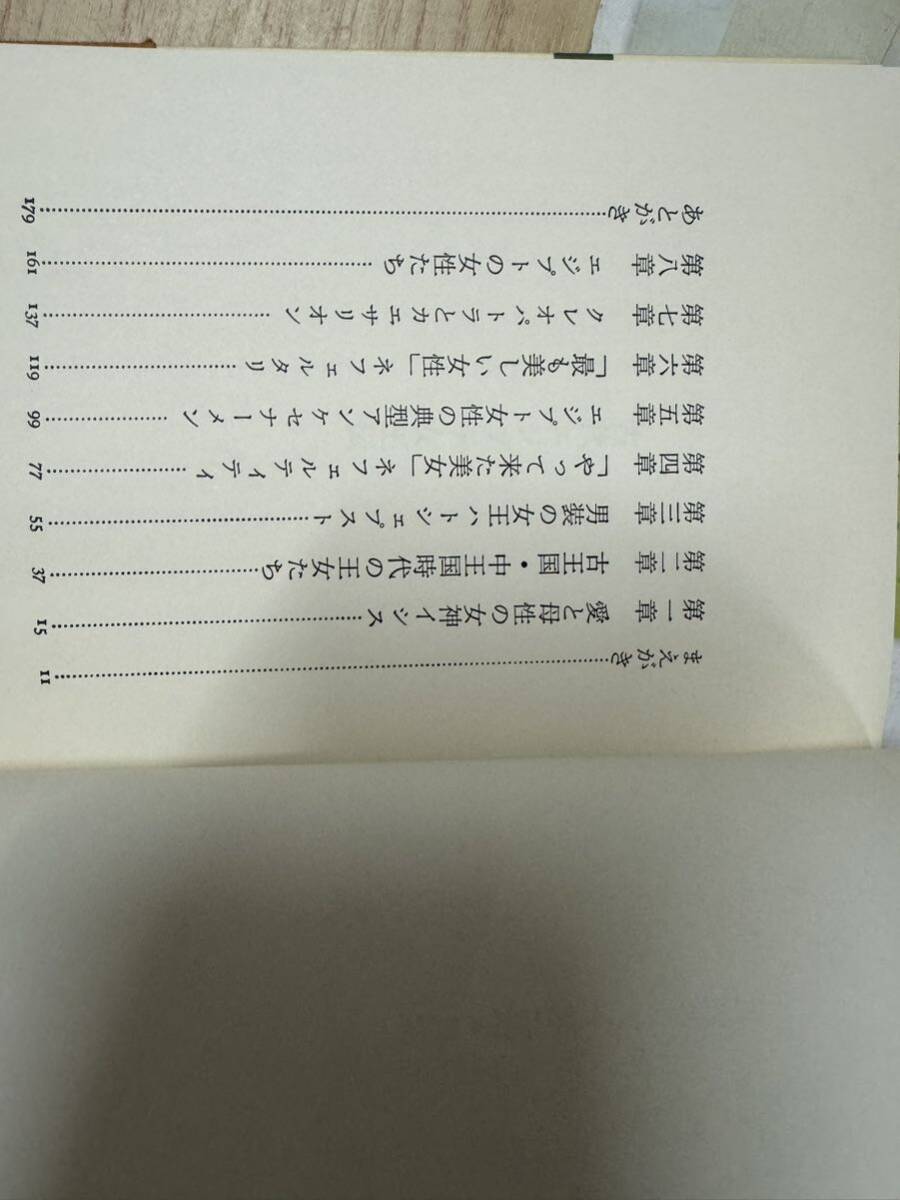 まえがき……………………………………………… 11
第一章 愛と母性の女神イシス……………………… 15
第二章 古王国・中王国時代の王女たち…………… 37
第三章 男装の女王ハトシェプスト………………… 55
第四章 「やって来た美女」ネフェルティティ…… 77
第五章 エジプト女性の典型アンケセナーメン…… 99
第六章 「最も美しい女性」ネフェルタリ………… 119
第七章 クレオパトラとカエサリオン……………… 137
第八章 エジプトの女性たち………………………… 161
あとがき……………………………………………… 179